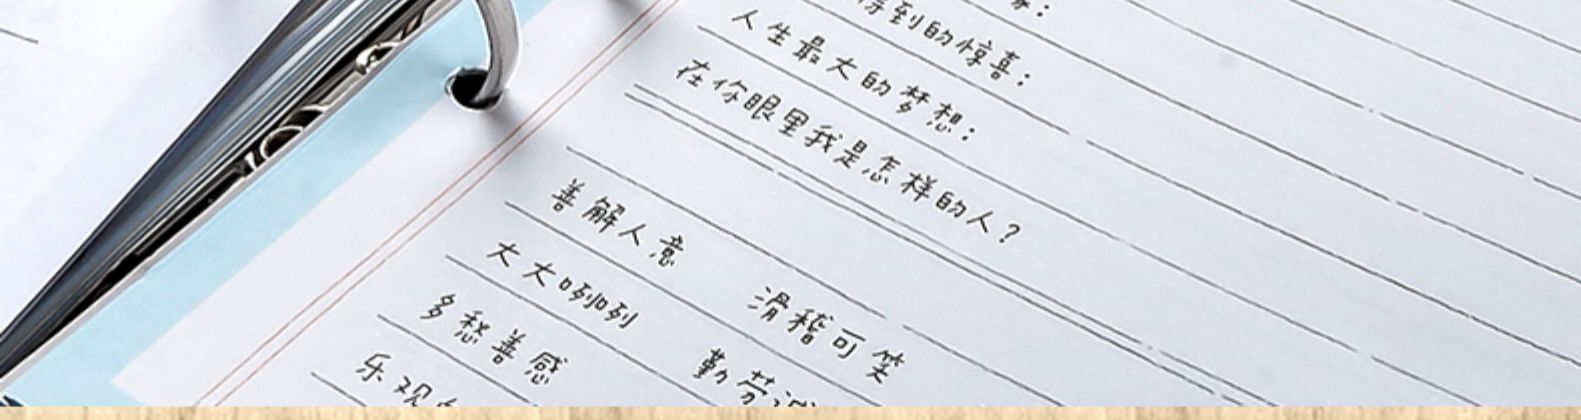 得到的惊喜：
人生最大的梦想：
在你眼里我是怎样的人？
善解人意
大大咧咧 滑稽可笑
多愁善感 勤劳诚
乐观